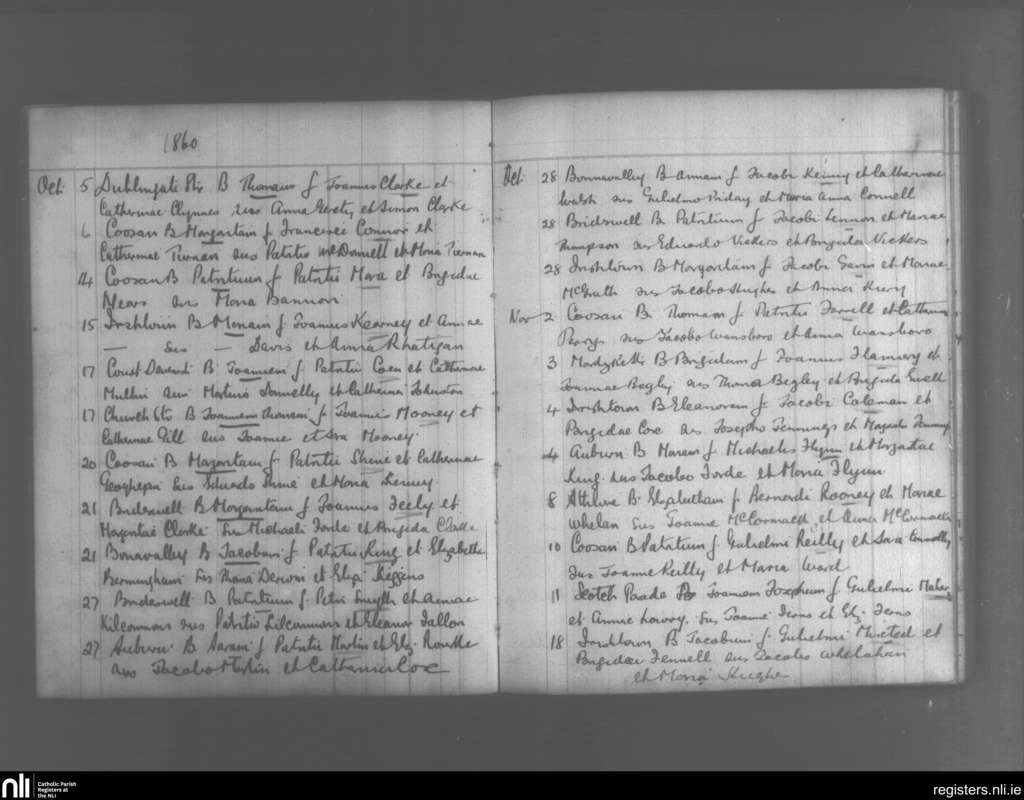 1860
Oct. 5 Dublingate Str B Thomam f Joannis Clarke et
Catherinae Clynnes sus Anna Geraty et Simon Clarke
6 Coosan B Margaritam f Francisci Connor et
Catherinae Tiernan sus Patritio McDonnell et Maria Tiernan
14 Coosan B Patritium f Patritii Mara et Brigidae
Mears sus Maria Bannon
15 Irishtown B Mariam f Joannis Kearney et Annae
— sus — Davis et Anna Rhatigan
17 Court B Joannem f Patritii Coen et Catherinae
Mullin sus Martino Donnelly et Catherina Johnston
17 Church Str B Joannem Thomam f Joannis Mooney et
Catherinae Gill sus Joanne et Sara Mooney
20 Coosan B Margaritam f Patritii Shine et Catherinae
Geoghegan sus Eduardo Shine et Maria Kenny
21 Bridewell B Margaritam f Joannis Feely et
Margaritae Clarke sus Michaeli Forde et Brigida Clarke
21 Bonavalley B Jacobum f Patritii King et Elizabethae
Bermingham sus Thoma et Eliza Keggins
27 Bridewell B Patritium f Petri Smyth et Annae
Kilcommons sus Patritio Kilcommons et Eleanor Fallon
27 Auburn B Saram f Patritii Martin et Eliz. Rourke
sus Jacobo Martin et Catherina Cox
Oct. 28 Bonnavalley B Annam f Jacobi Kenny et Catherinae
Walsh sus Gulielmo Friday et Maria Anna Connell
28 Bridewell B Patritium f Jacobi Lennon et Mariae
Thompson sus Eduardo Vickers et Brigida Vickers
28 Irishtown B Margaritam f Jacobi Gavin et Mariae
McGrath sus Jacobo Hughes et Anna
Nov 2 Coosan B Thomam f Patritii Farrell et Catherinae
sus Jacobo Wansboro et Anna Wansboro
3 B Brigidam f Joannis Flannery et
Joannae Begley sus Thoma Begley et Brigida
4 Irishtown B Eleanoram f Jacobi Coleman et
Brigidae Cox sus Josepho Jennings et
4 Auburn B Mariam f Michaelis Flynn et Margaritae
King. sus Jacobo Forde et Maria Flynn
8 Athlone B Elizabetham f Bernardi Rooney et Mariae
Whelan sus Joanne McCormack et Anna McCormack
10 Coosan B Patritium f Gulielmi Reilly et Sara Connolly
sus Joanne Reilly et Maria Ward
11 Scotch Parade B Joannem Josephum f Gulielmi Maher
et Annie Lowry. sus Joanne Irons et Eliz. Irons
18 Irishtown B Jacobum f Gulielmi Muxted et
Brigidae Fennell sus Jacobo Whelahan
et Maria Hughes
nli Catholic Parish
Registers at
the NLI
registers.nli.ie